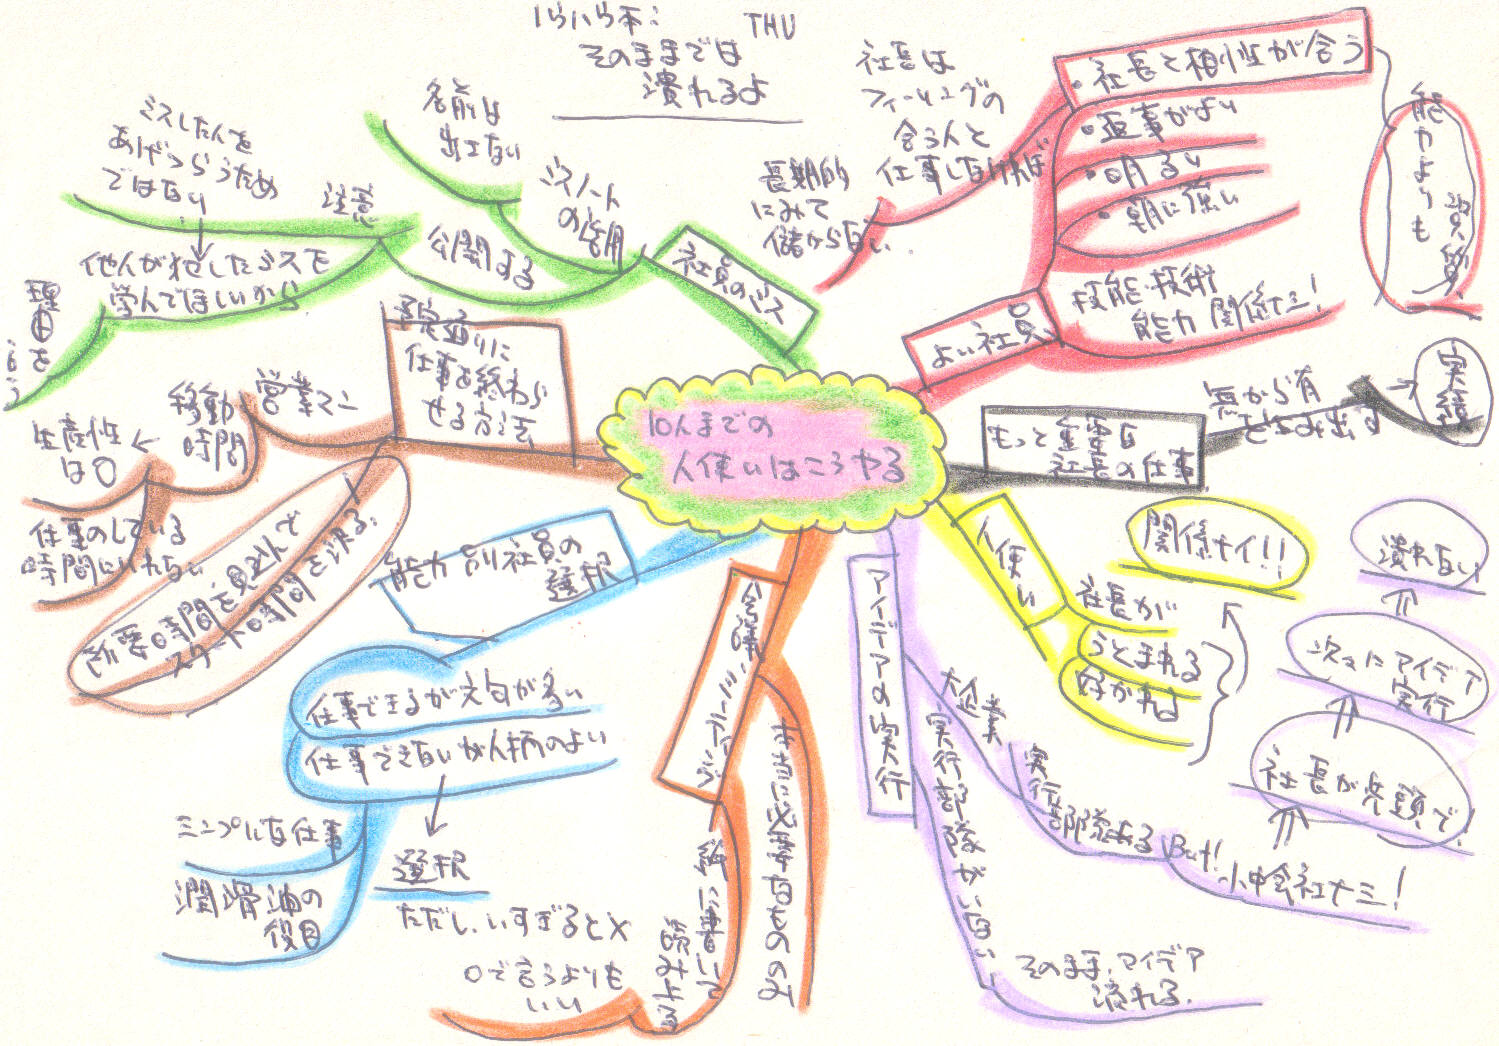 THU
そのままでは
潰れるよ
10人までの
人使いはこうやる
よい社員
・社長と相性が合う
・返事がよい
・明るい
・朝に強い
技能・技術
能力 関係ナシ!
能力よりも
資質
社長は
フィーリングの
合う人と
仕事しなければ
長期的
にみて
儲からない
もっと重要な
社長の仕事
無から有
を生み出す
→実績
人使い
社長が
うとまれる
好かれる
関係ナイ!!
アイデアの実行
大企業
実行部隊ある
But!
小中会社ナシ!
社長が先頭で
次々にアイデア
実行
潰れない
実行部隊がいない!
そのまま、アイデア
流れる
会議
本当に必要なもののみ
紙に書いて
読み上げる
口で言うよりも
いい
能力別社員の
選択
仕事できるが文句が多い
仕事できないが人柄のよい
選択
ただし、いすぎると×
シンプルな仕事
潤滑油の
役目
予定通りに
仕事を終わら
せる方法
営業マン
移動
時間
生産性
は0
仕事のしている
時間にいれない
所要時間を見込んで
スタート時間を決る。
社員のミス
ミスノート
の活用
名前は
出さない
公開する
注意
ミスした人を
あげつらうため
ではない
他人が犯したミスを
学んでほしいから
理由を